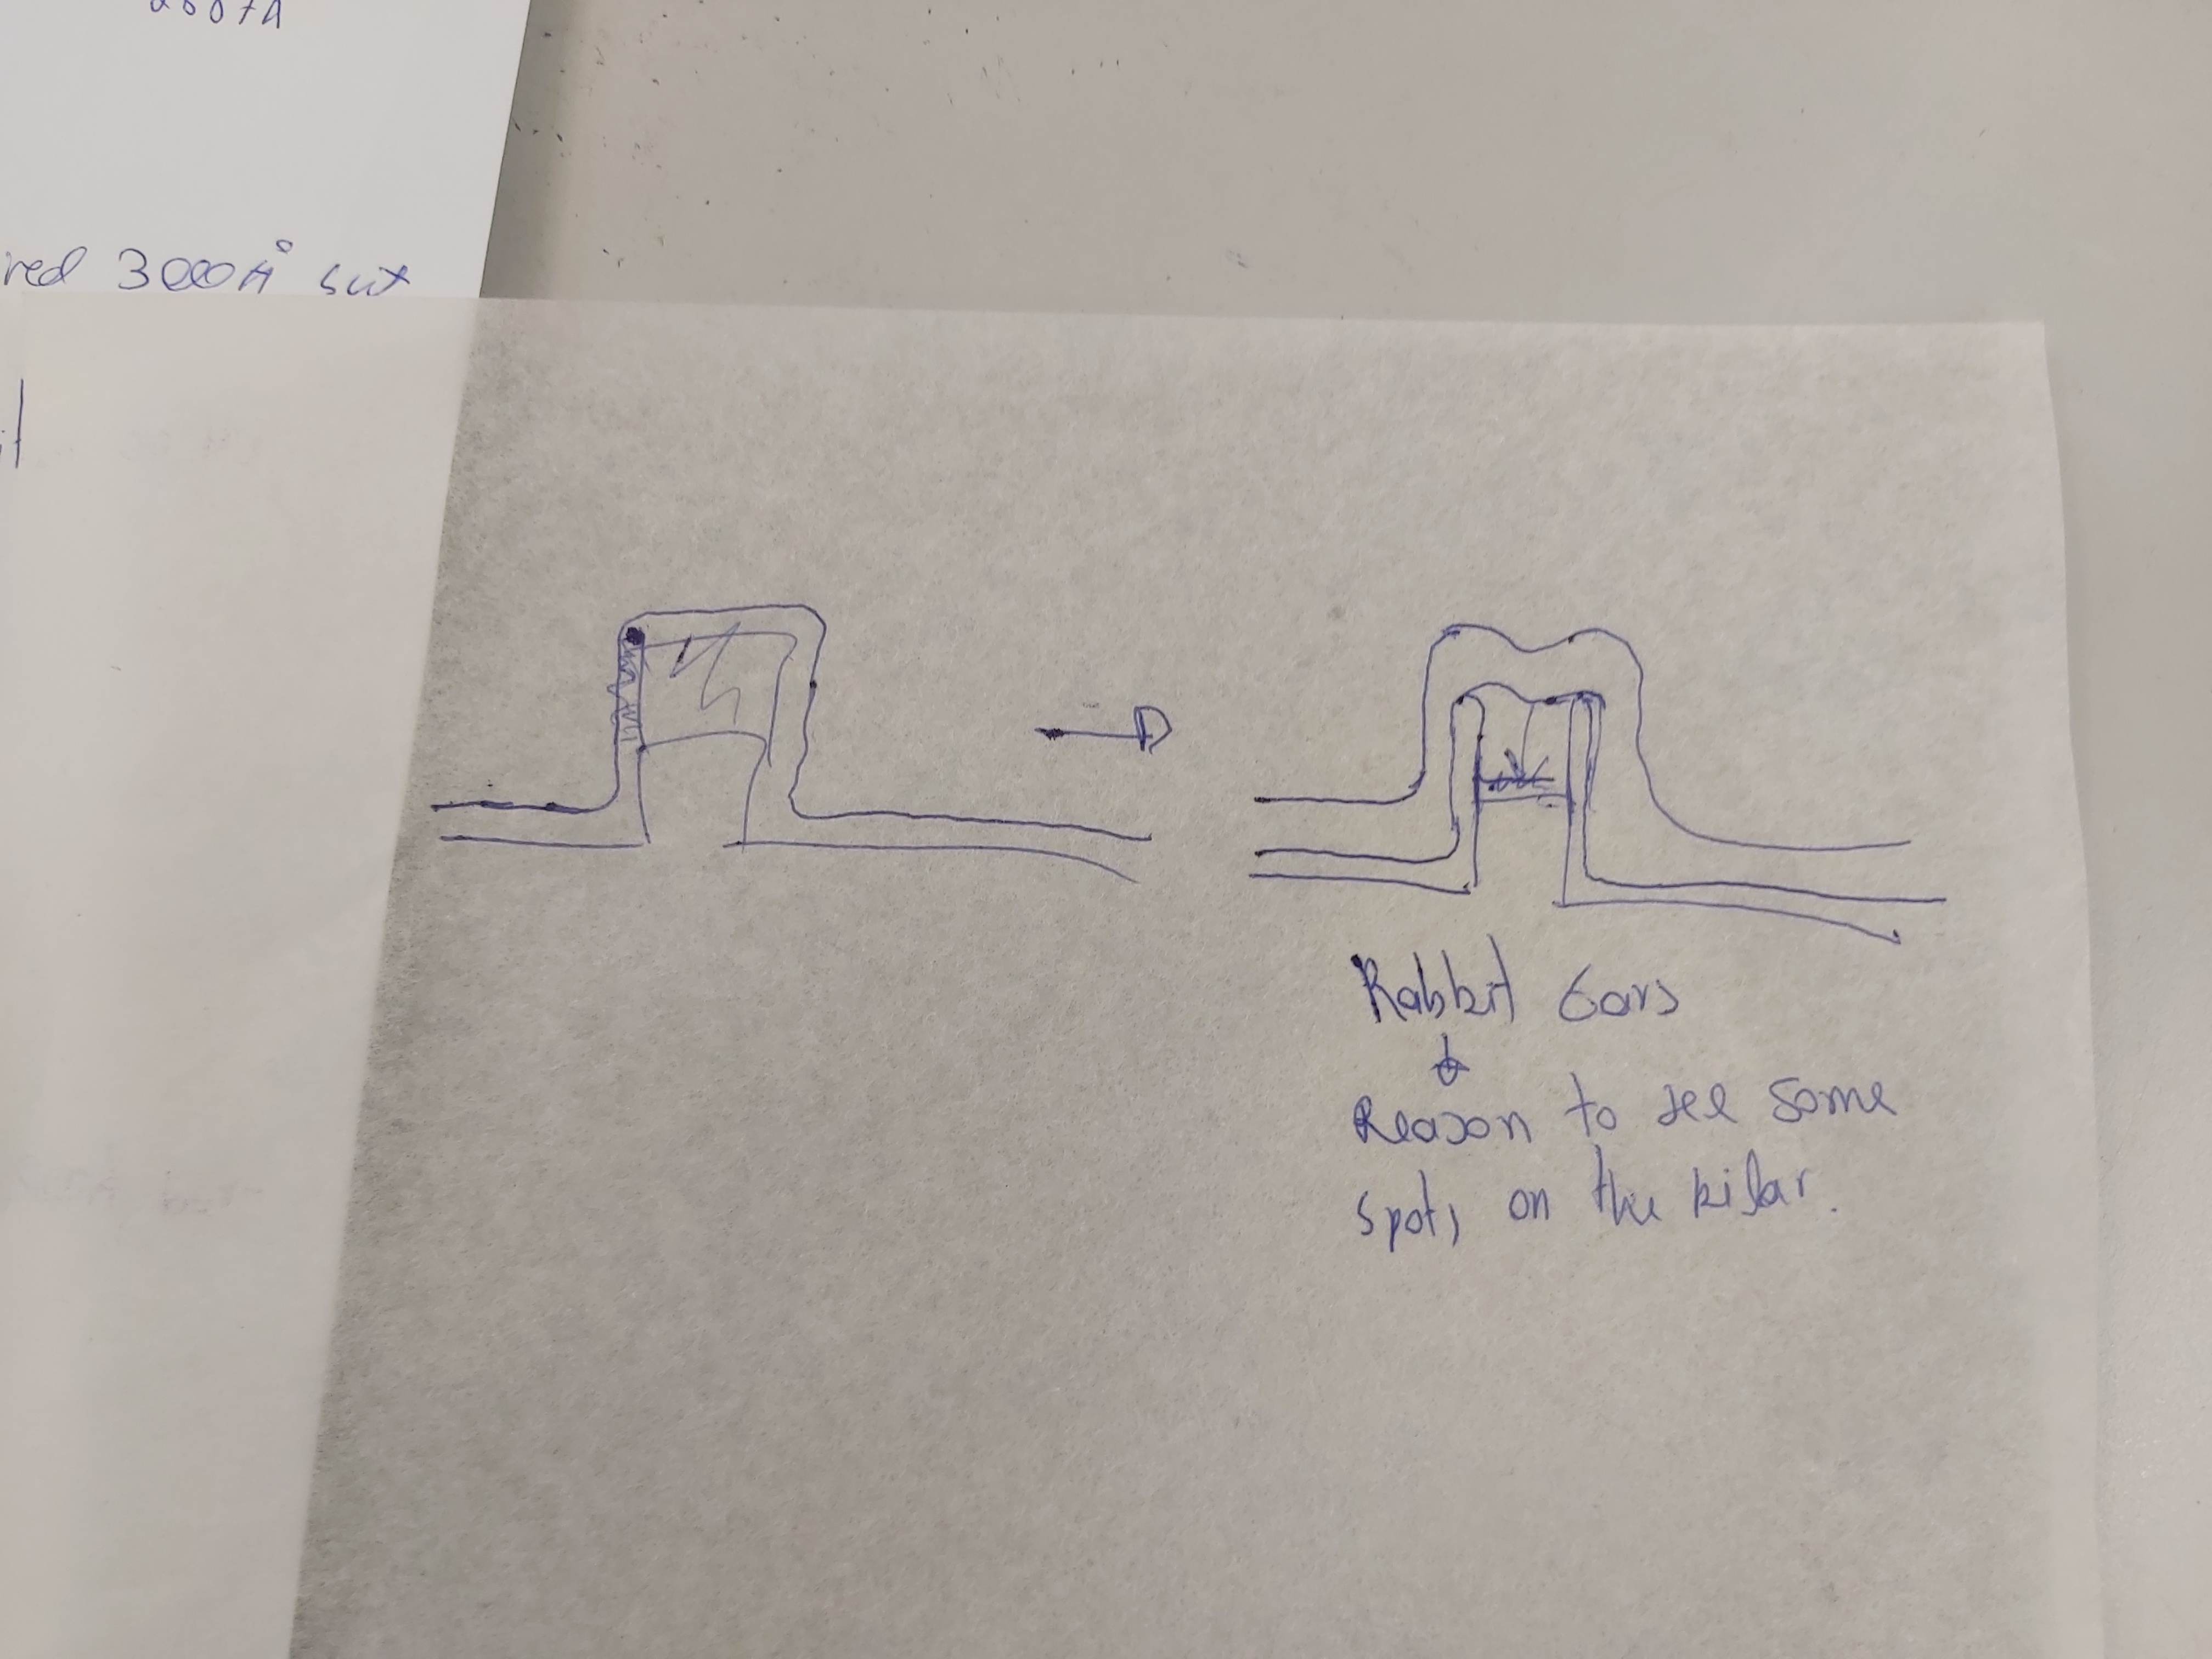 red 3000Å but
Rabbit Ears
Reason to see some
spots on the pilar.